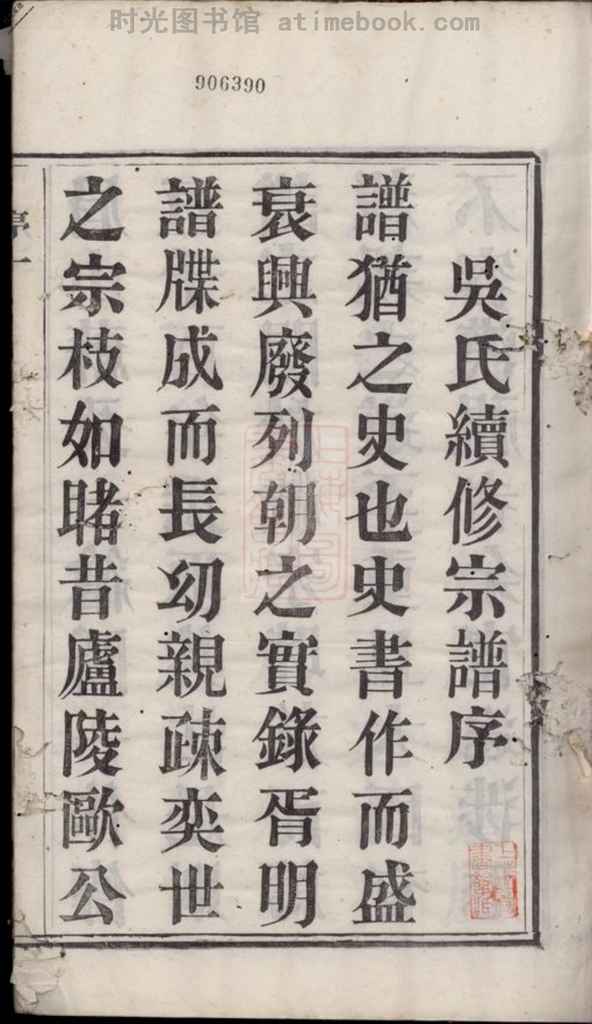 时光图书馆 - atimebook.com
906390
吳氏續修宗譜序
譜猶之史也史書作而盛
衰興廢列朝之實錄胥明
譜牒成而長幼親疎奕世
之宗枝如睹昔廬陵歐公